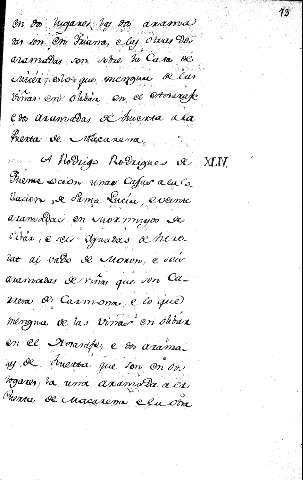 93
en dos lugares, las dos aranza
das son en Triana, e las otras dos
aranzadas son sobre la Casa de
e lo que mengua de las
viñas en olibar en el
e dos aranzadas de huerta a la
Puerta de Macarena.
A Rodrigo Rodrigues de XLIV.
unas Casas a la Co
lacion de Santa Lucia, e veinte
aranzadas en de
olibar, e seis Yugadas de here
dat al vado de Moron, e seis
aranzadas de viñas que son Ca
rrera de Carmona, e lo que
mengua de las viñas en olibar
en el Axarafe, e dos aranza
das de huerta que son en dos
logares, la una aranzada a la
Puerta de Macarena e la otra